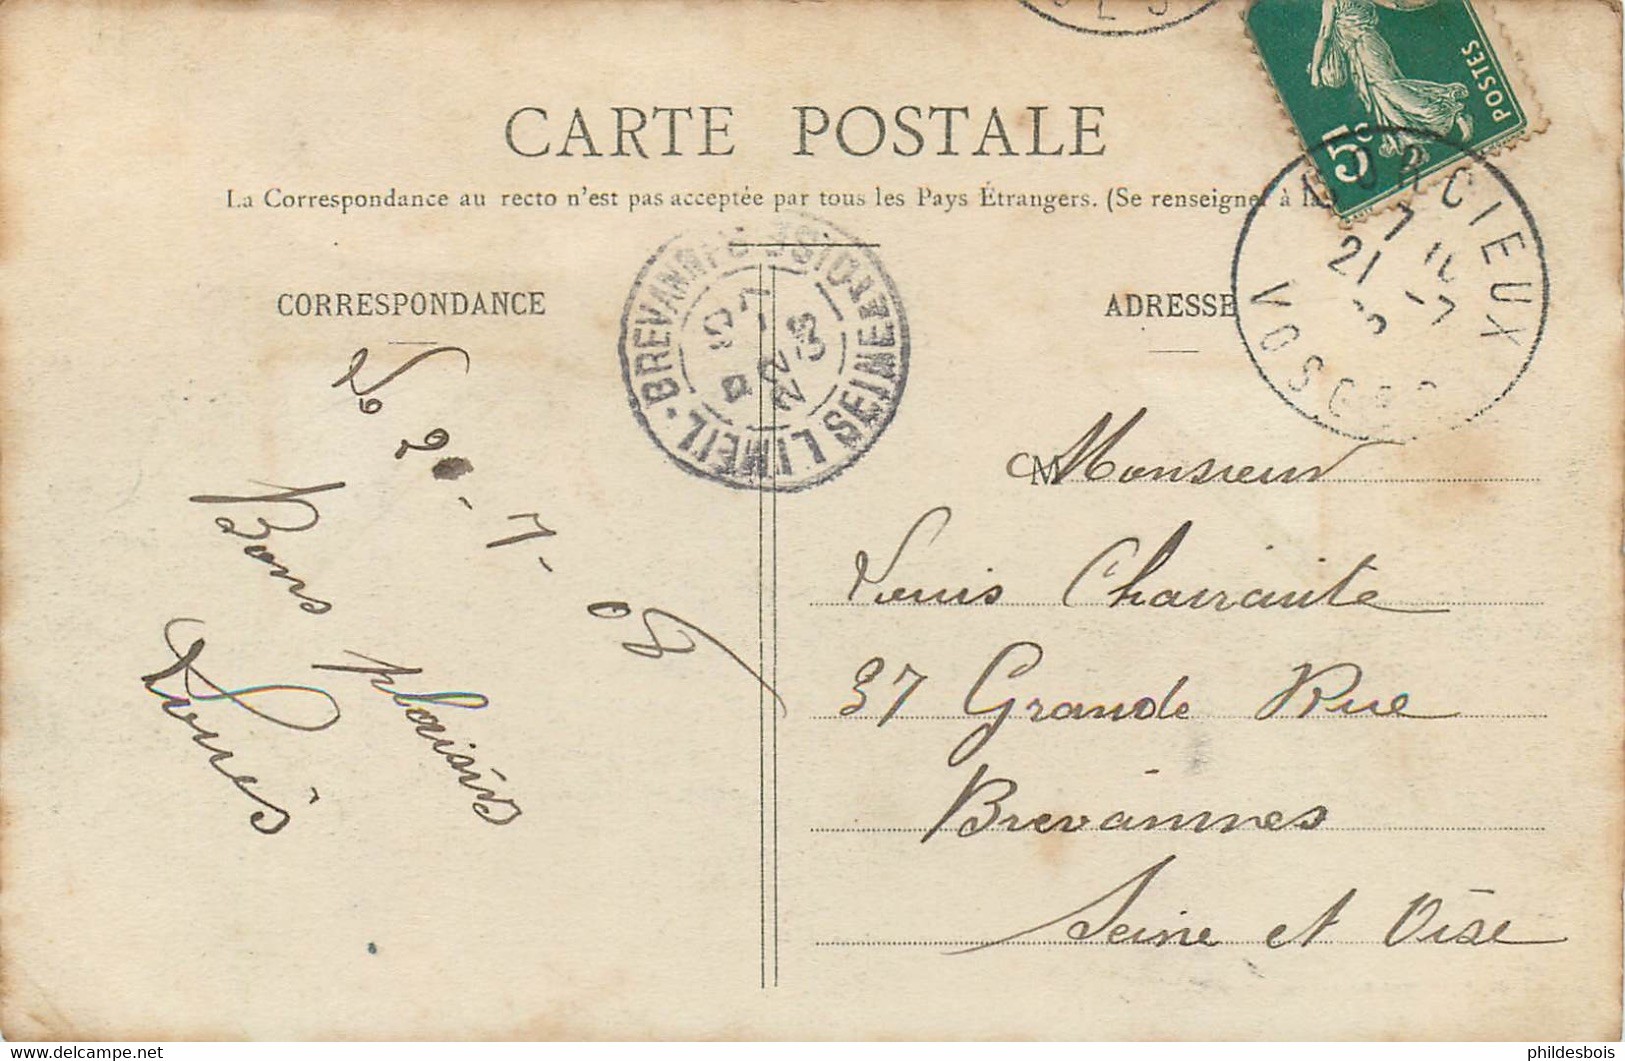 CARTE POSTALE
La Correspondance au recto n'est pas acceptée par tous les Pays Étrangers. (Se renseigner à la
CORRESPONDANCE
ADRESSE
POSTES
5c
CORCIEUX
7
21 - 7
VOSGES
BREVANNES
LIMEIL
SEINE
Le 2 - 7 - 08
Bons plaisirs
Louis
M Monsieur
Louis Charrauite
37 Grande Rue
Brevannes
Seine et Oise
phildesbois